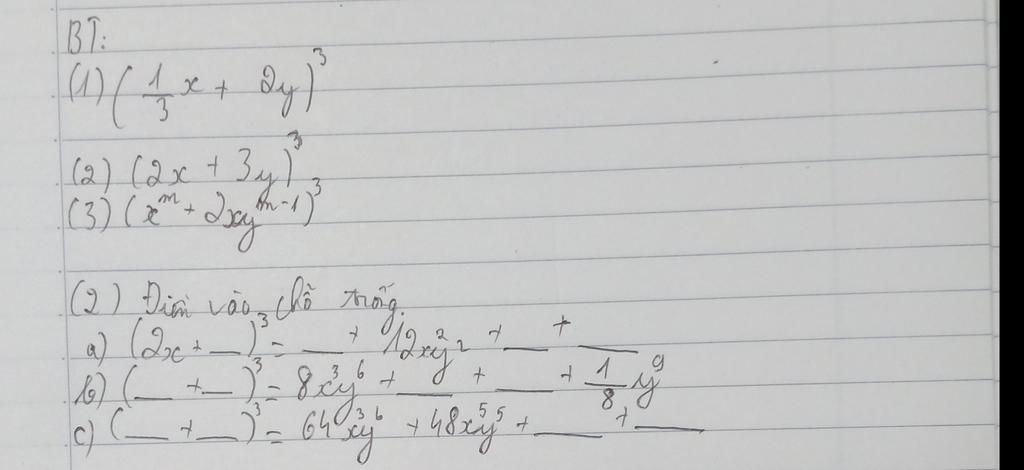 BT:
(1) (1/3 x + 2y)³
(2) (2x + 3y)³
(3) (xᵐ + 2xyᵐ⁻¹)³
(2) Điền vào chỗ trống.
a) (2x + __)³ = __ + 12x²y² + __ + __
b) (__ + __)³ = 8x³y⁶ + __ + __ + 1/8 y⁹
c) (__ + __)³ = 64x³y⁶ + 48x⁵y⁵ + __ + __